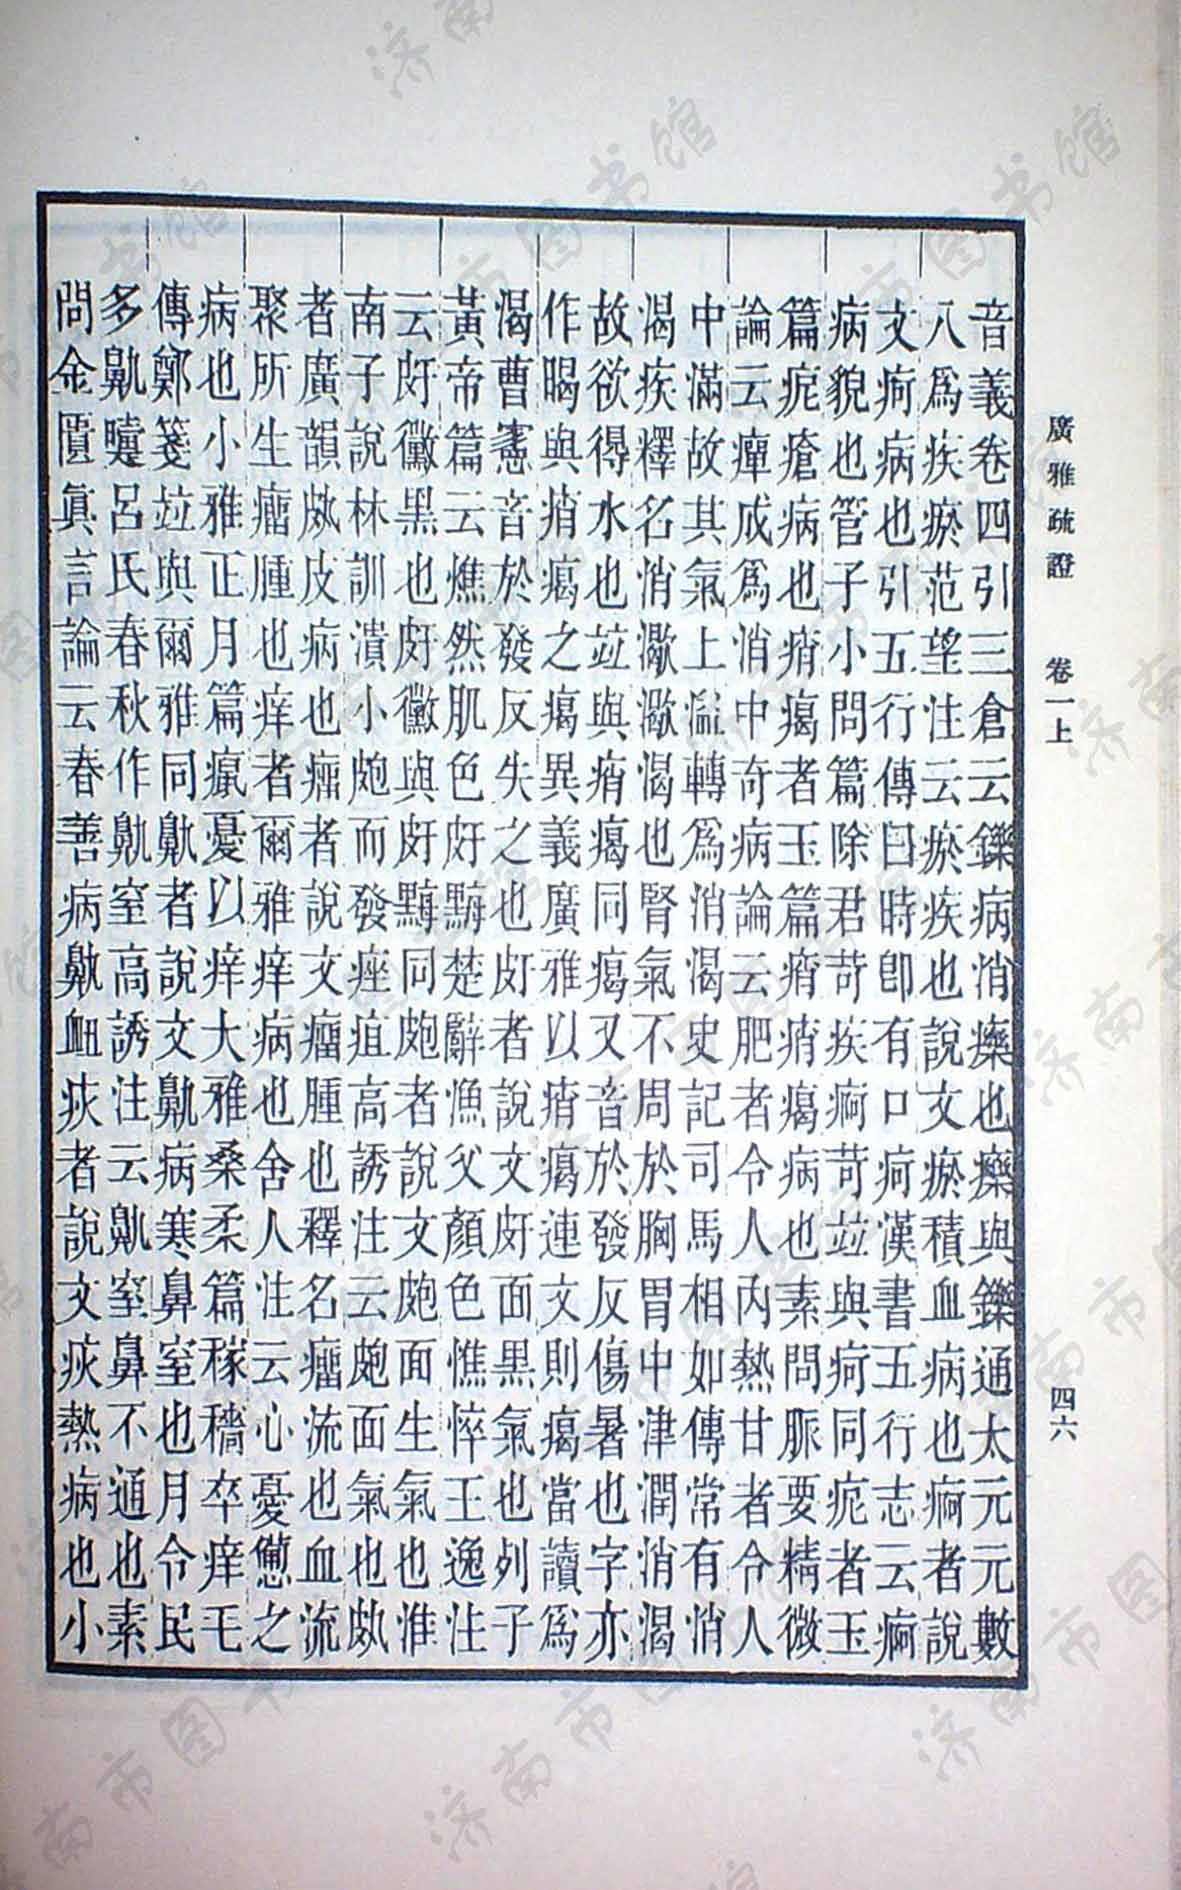 廣雅疏證　卷一上
四六
音義卷四引三倉云鑠病消㿑也㿑與鑠通太元元數
八爲疾瘀范望注云瘀疾也說文瘀積血病也痾者說
文疴病也引五行傳曰時卽有口疴漢書五行志云痾
病貌也管子小問篇除君苛疾痾苛竝與疴同痆者玉
篇痆瘡病也痟𤸎者玉篇痟痟𤸎病也素問脈要精微
論云癉成爲消中奇病論云肥者令人內熱甘者令人
中滿故其氣上溢轉爲消渴史記司馬相如傳常有消
渴疾釋名消㵣㵣渴也腎氣不周於胸胃中津潤消渴
故欲得水也竝與痟𤸎同𤸎又音於發反傷暑也字亦
作暍與痟𤸎之𤸎異義廣雅以痟𤸎連文則𤸎當讀爲
渴曹憲音於發反失之也皯者說文皯面黑氣也列子
黃帝篇云燋然肌色皯黣楚辭漁父顏色憔悴王逸注
云皯黴黑也皯黴與皯黣同皰者說文皰面生氣也淮
南子說林訓潰小皰而發痤疽高誘注云皰面氣也㿺
者廣韻㿺皮病也瘤者說文瘤腫也釋名瘤流也血流
聚所生瘤腫也痒者爾雅痒病也舍人注云心憂憊之
病也小雅正月篇癙憂以痒大雅桑柔篇稼穡卒痒毛
傳鄭箋竝與爾雅同鼽者說文鼽病寒鼻窒也月令民
多鼽嚏呂氏春秋作鼽窒高誘注云鼽窒鼻不通也素
問金匱眞言論云春善病鼽衄疢者說文疢熱病也小